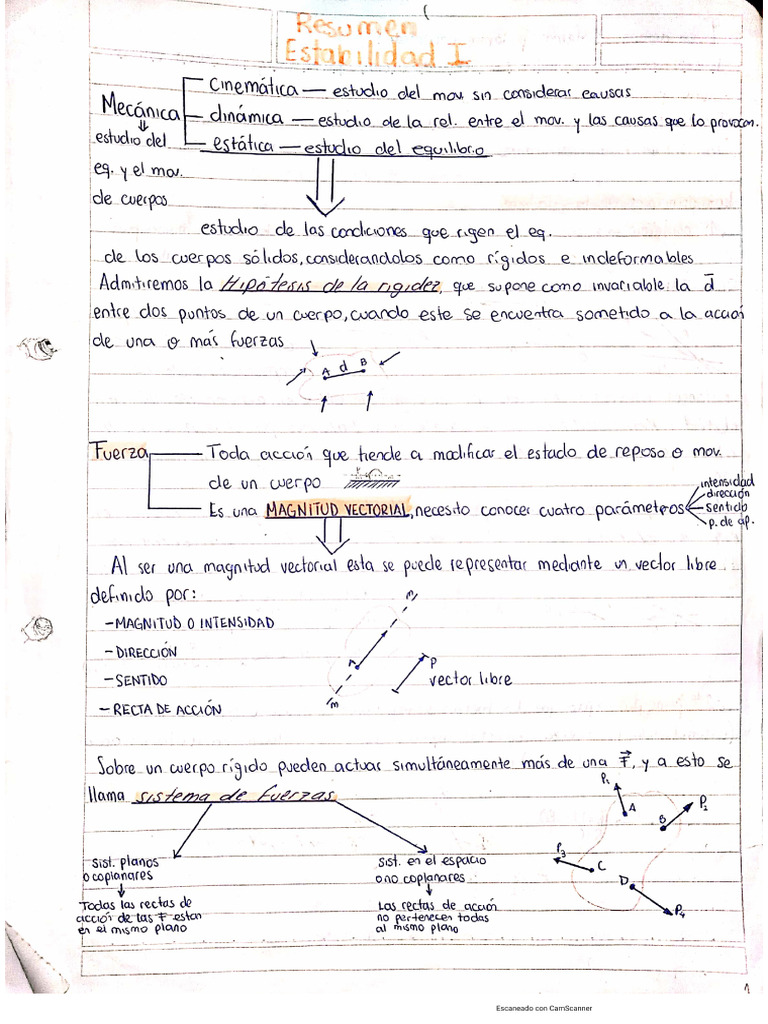 Resumen
Estabilidad I
Mecánica
estudio del
eq. y el mov.
de cuerpos
cinemática — estudio del mov sin considerar causas
dinámica — estudio de la rel. entre el mov. y las causas que lo provocan.
estática — estudio del equilibrio
estudio de las condiciones que rigen el eq.
de los cuerpos sólidos, considerandolos como rígidos e indeformables
Admitiremos la Hipótesis de la rigidez, que supone como invariable la d
entre dos puntos de un cuerpo, cuando este se encuentra sometido a la acción
de una o más fuerzas
A d B
Fuerza
Toda acción que tiende a modificar el estado de reposo o mov.
de un cuerpo
Es una MAGNITUD VECTORIAL, necesito conocer cuatro parámetros
intensidad
dirección
sentido
p. de ap.
Al ser una magnitud vectorial esta se puede representar mediante un vector libre
definido por:
-MAGNITUD O INTENSIDAD
-DIRECCIÓN
-SENTIDO
-RECTA DE ACCIÓN
A
m
P
vector libre
Sobre un cuerpo rígido pueden actuar simultáneamente más de una F, y a esto se
llama sistema de fuerzas
P1
A
B
P2
P3
C
D
P4
sist. planos
o coplanares
Todas las rectas de
acción de las F estan
en el mismo plano
sist. en el espacio
o no coplanares
Las rectas de acción
no pertenecen todas
al mismo plano
1
Escaneado con CamScanner